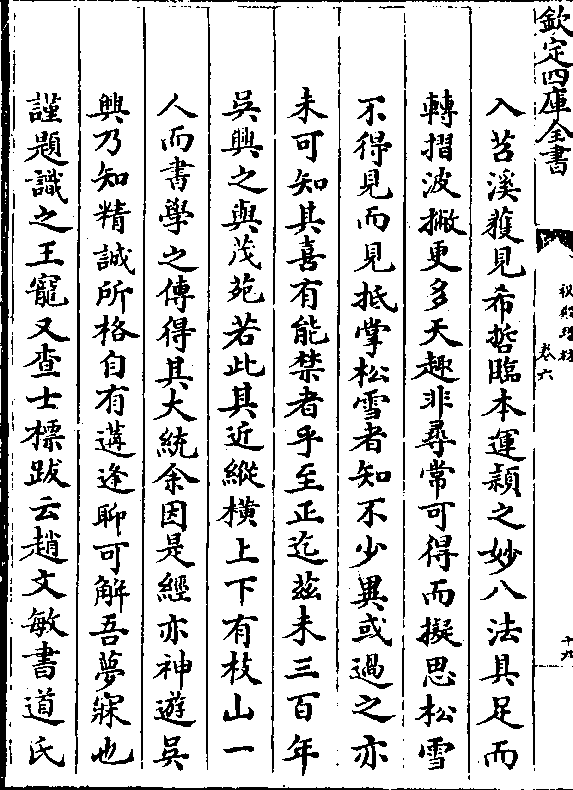 欽定四庫全書
秘殿珠林
卷六
十九
入苕溪獲見希哲臨本運頴之妙八法具足而
轉摺波撇更多天趣非尋常可得而擬思松雪
不得見而見抵掌松雪者知不少異或過之亦
未可知其喜有能禁者乎至正迄兹未三百年
吳興之與茂苑若此其近縱横上下有枝山一
人而書學之傳得其大統余因是經亦神遊吳
興乃知精誠所格自有遘逢聊可解吾夢寐也
謹題識之王寵又查士標跋云趙文敏書道氏